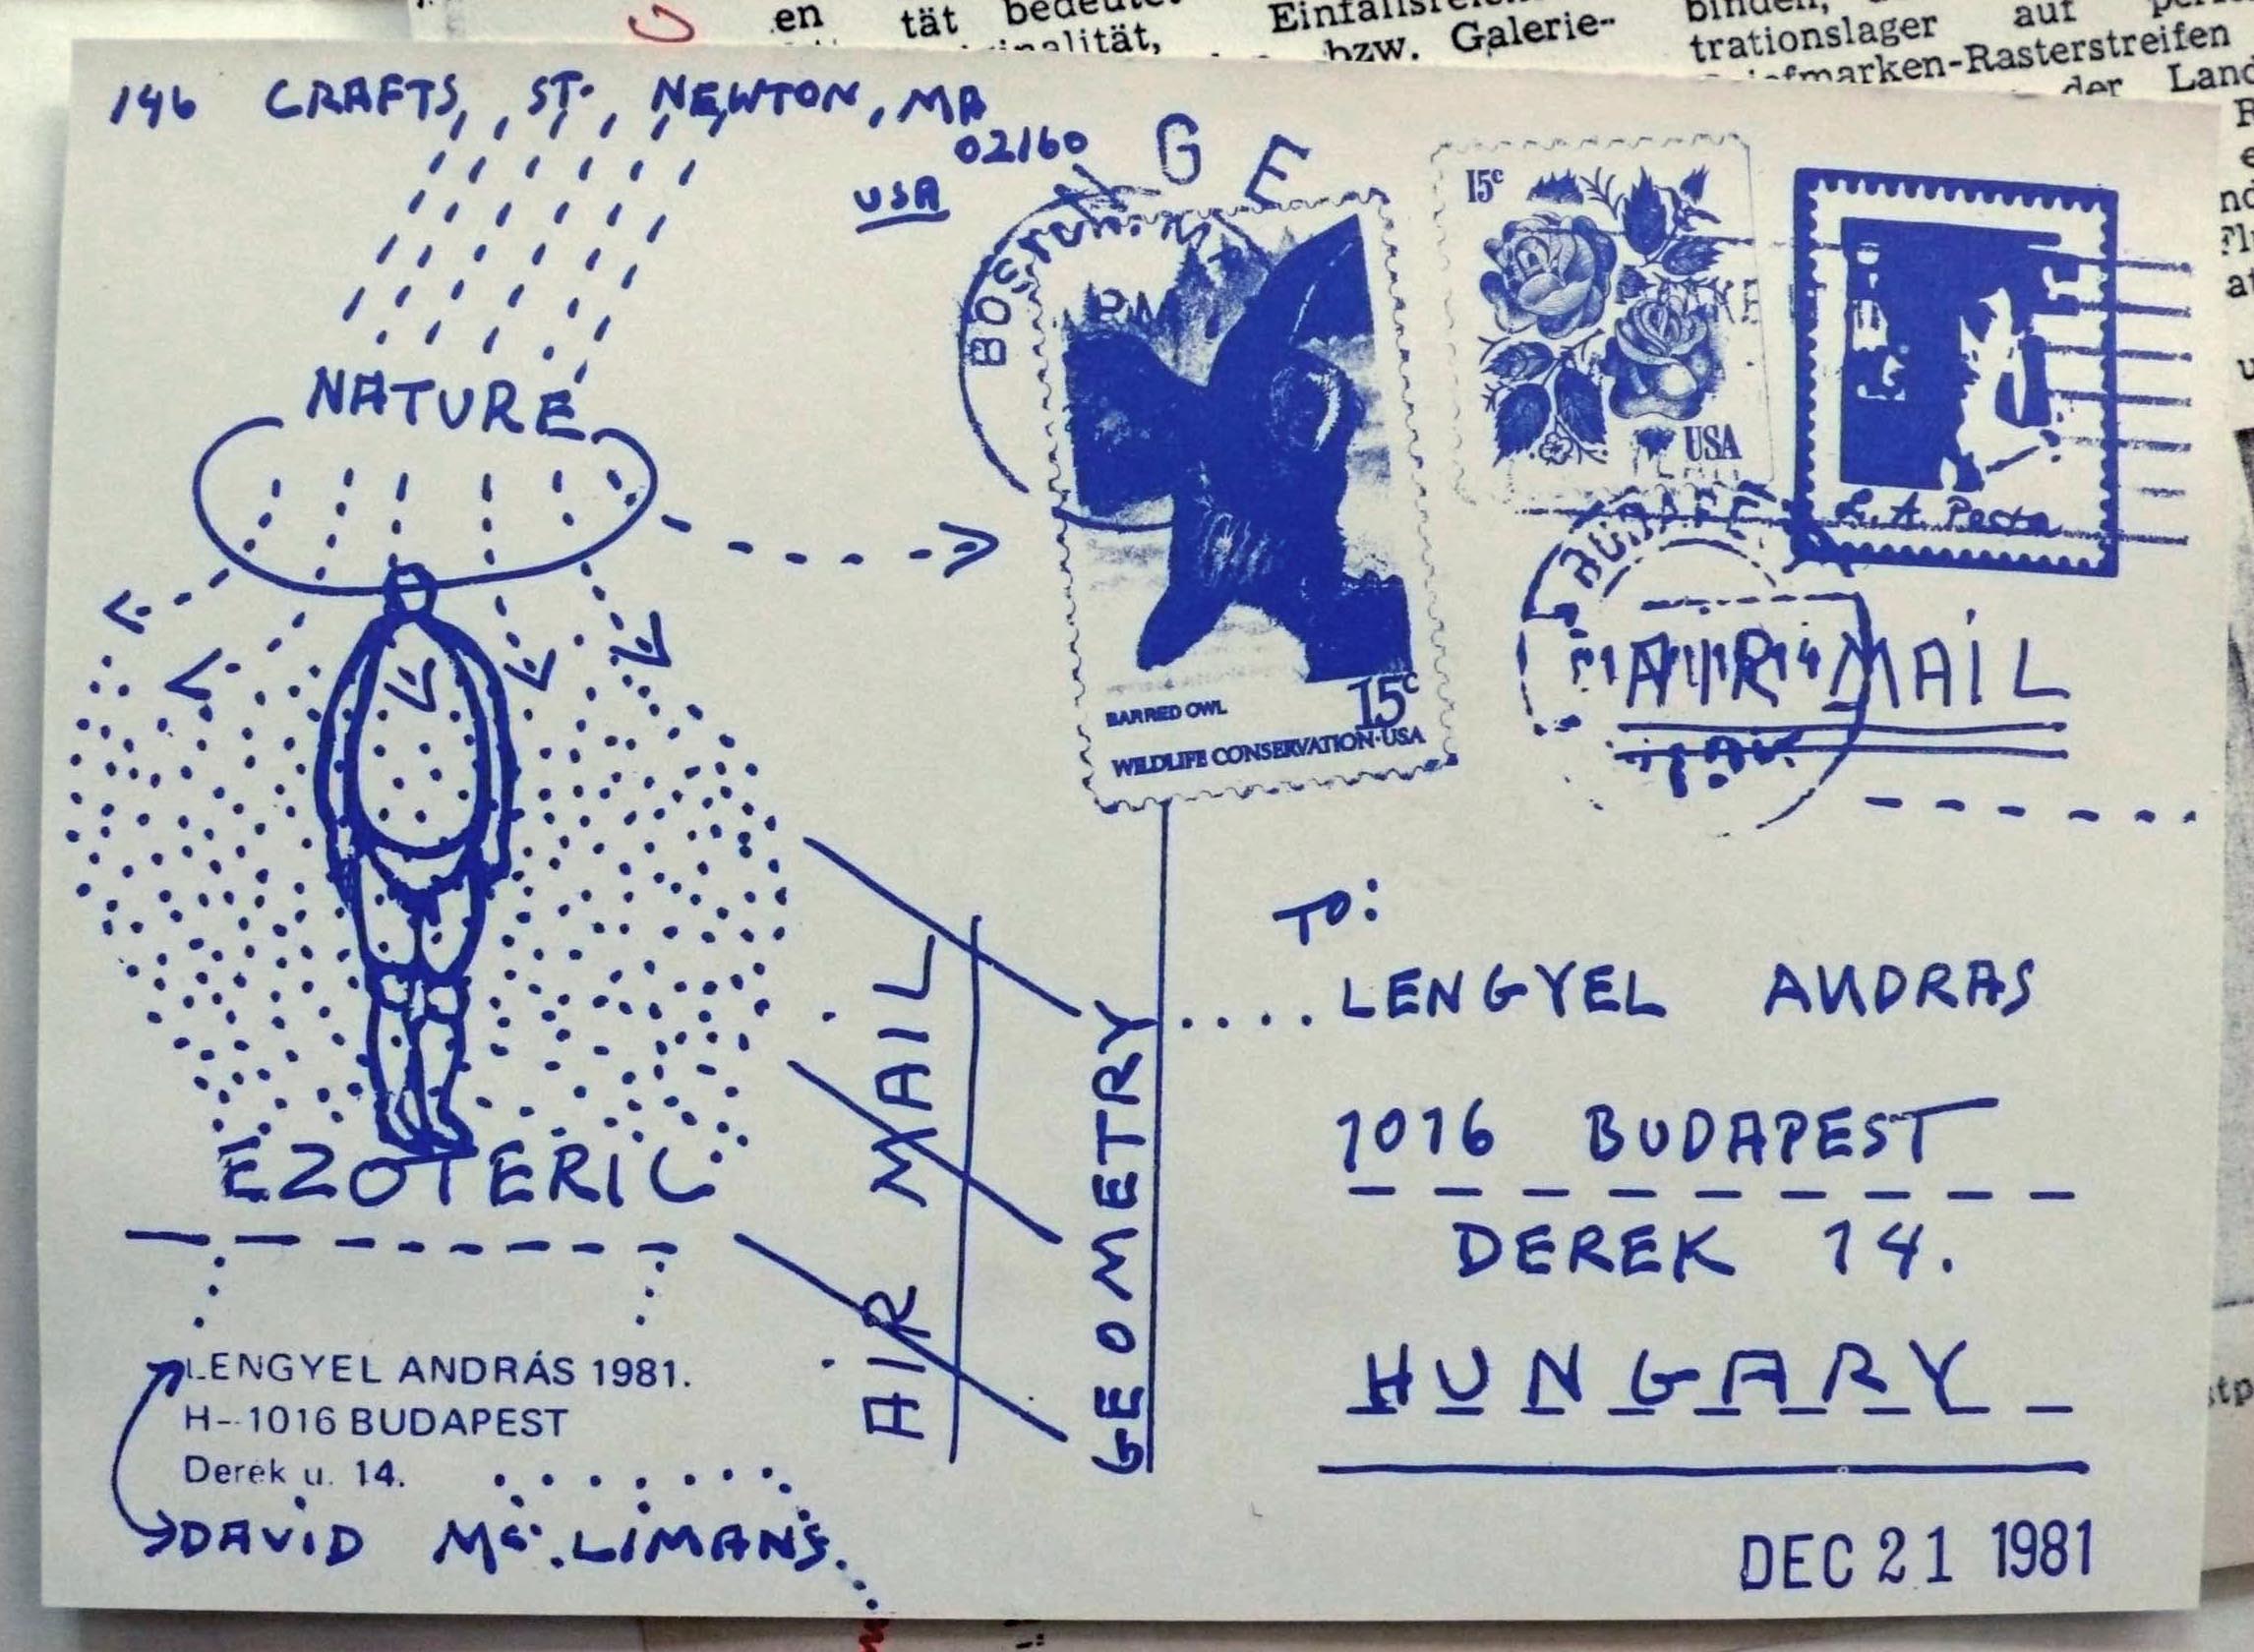 en tät bedeutet
Einfallsreich
binden,
trationslager auf
bzw. Galerie-
nalität,
Briefmarken-Rasterstreifen
der Land
146 CRAFTS, ST. NEWTON, MA
02160
USA
G E
NATURE
BOSTON, MA
PM
BARRED OWL
15c
WILDLIFE CONSERVATION·USA
15c
USA
L. A. Posta
BUDAPE
AIR MAIL
TO:
LENGYEL ANDRAS
1016 BUDAPEST
DEREK 14.
HUNGARY
AIR MAIL
GEOMETRY
EZOTERIC
LENGYEL ANDRÁS 1981.
H--1016 BUDAPEST
Derek u. 14.
DAVID Mc.LIMANS.
DEC 21 1981